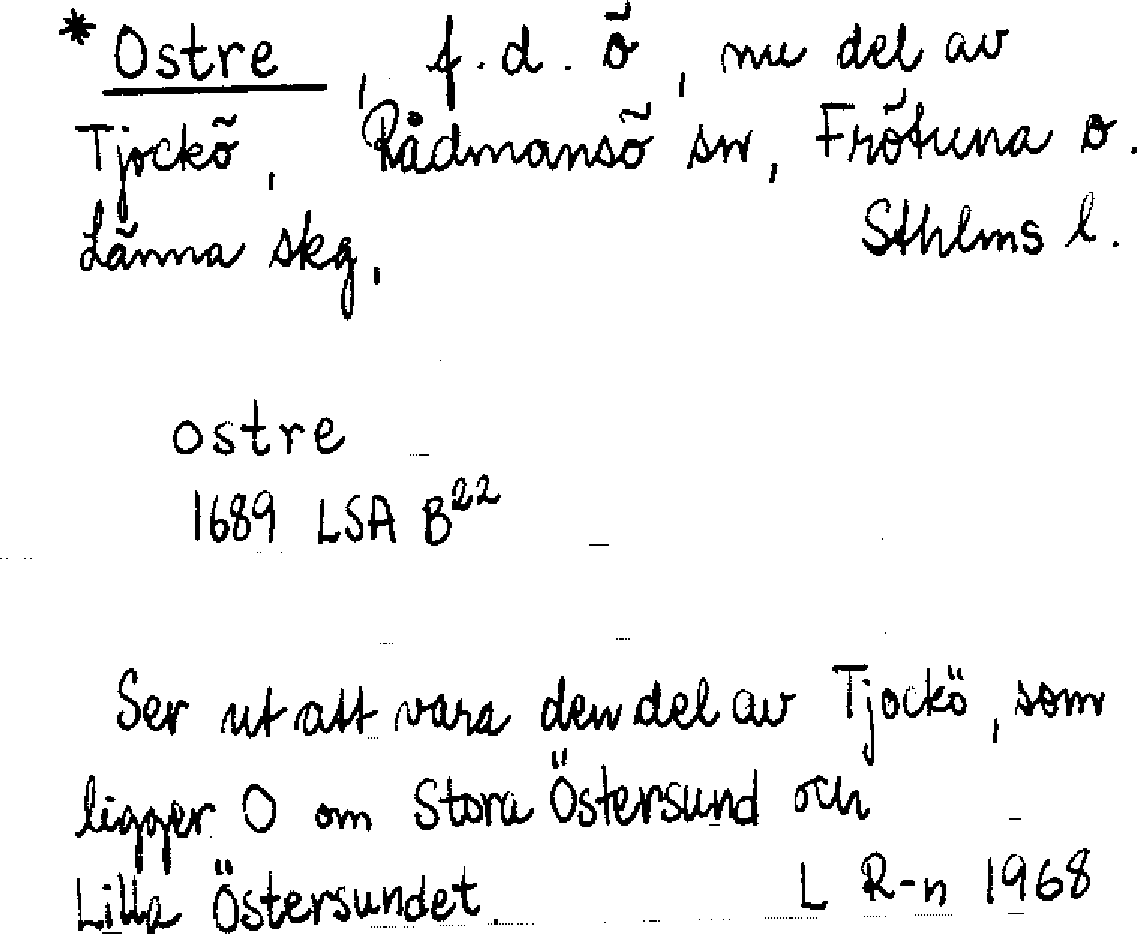 * Ostre, f.d. ö, nu del av
Tjockö, Rådmansö sn, Frötuna o.
Länna skg, Sthlms l.
ostre
1689 LSA B²²
Ser ut att vara den del av Tjockö, som
ligger O om Stora Östersund och
Lilla Östersundet. L R-n 1968